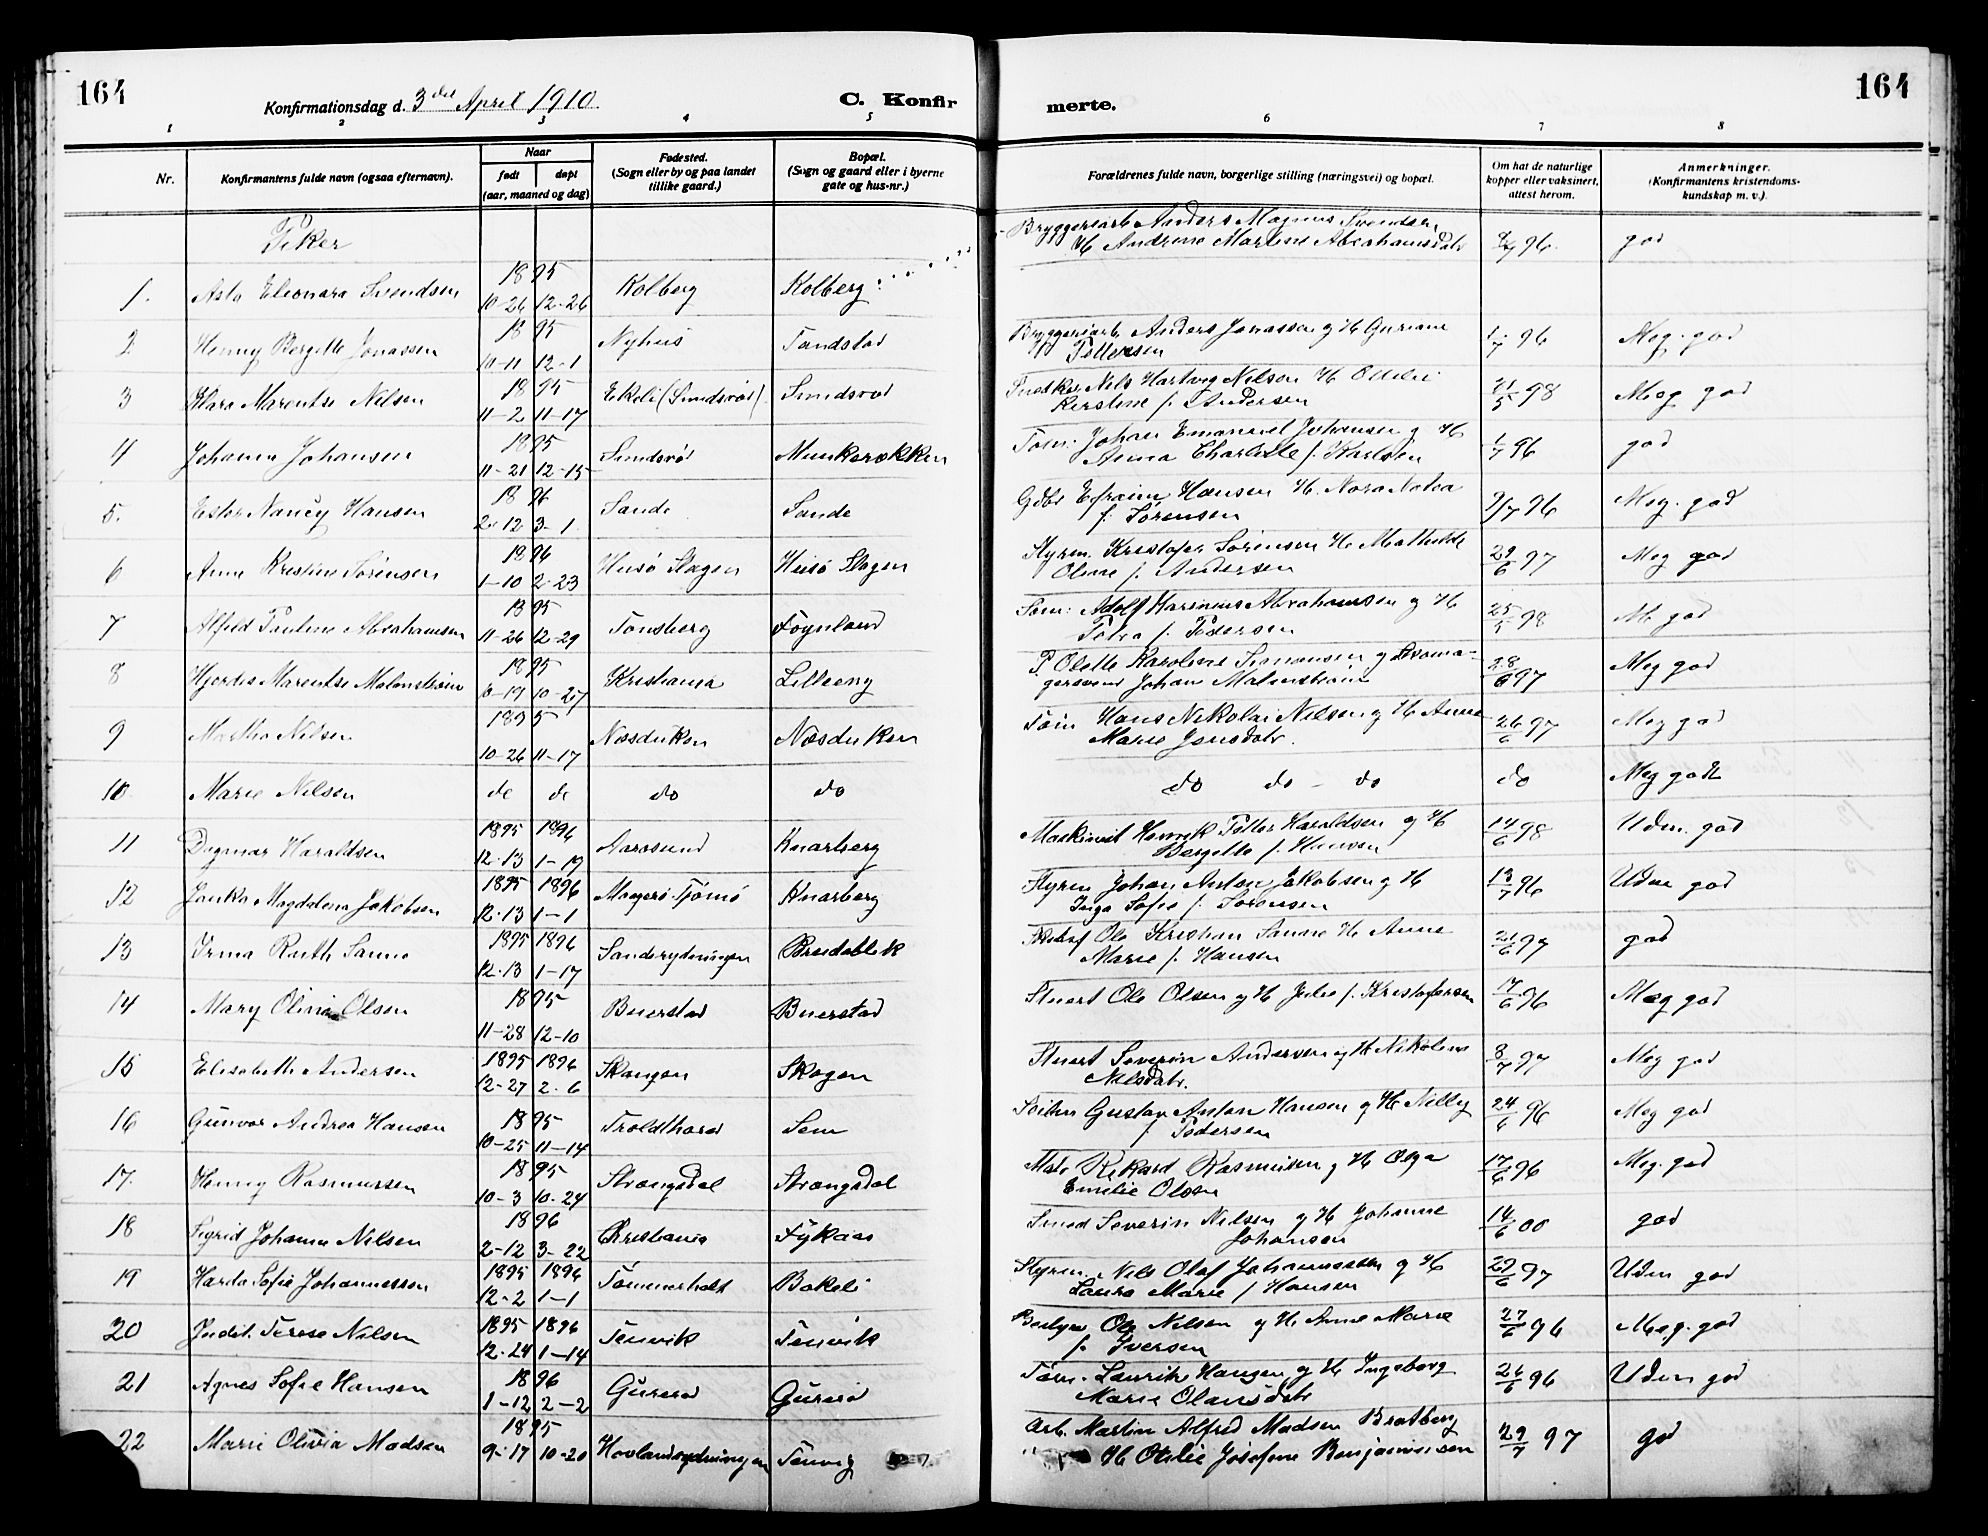 164
Konfirmationsdag d. 3die April 1910.
C. Konfir
merte.
164
1 2 3 4 5 6 7 8
Nr.
Konfirmantens fulde navn (ogsaa efternavn).
Naar
født
døpt
(aar, maaned og dag)
Fødested.
(Sogn eller by og paa landet
tillike gaard.)
Bopæl.
(Sogn og gaard eller i byerne
gate og hus-nr.)
Forældrenes fulde navn, borgerlige stilling (næringsvei) og bopæl.
Om hat de naturlige
kopper eller vaksinert,
attest herom.
Anmerkninger.
(Konfirmantens kristendoms-
kundskap m. v.).
Piker
Bryggeriarb Anders Magnus Svendsen
H Andrine Martine Abrahamsdatr 96. god
1895
1. Asta Eleonora Svendsen 10-26 12-26 Kolberg Kolberg
1895
2 Henny Bergitte Jonassen 10-11 12-1 Nyhus Tandstad Bryggeriarb. Anders Jonassen og H Guriane
Pettersen 1/7 96 Meg. god
1895
3 Klara Marentse Nilsen 11-2 11-17 Ekeli (Smidsrød) Smidsrød Snedker Nils Hartvig Nilsen H Otilie
Kirstine f. Andersen 21/5 98 Meg god
1895
4 Johanna Johansen 11-21 12-15 Smidsrød Munkerekken Tøm. Johan Emanuel Johansen og H
Anna Charlotte f. Karlsen 1/7 96 god
1896
5. Ester Nancy Hansen 2-12 3-1 Sande Sande Gdbr Efraim Hansen H. Nora
f. Sørensen 9/7 96 Meg. god
1896
6 Anna Kristine Sørensen 1-10 2-23 Husø Slagen Husø Slagen Styrm. Kristofer Sørensen H. Mathilde
Oline f. Andersen 29/6 97 Meg god
1895
7 Alfild Pauline Abrahamsen 11-26 12-29 Tønsberg Føynland Søm: Adolf Marinius Abrahamsen og H
Petra f. Pedersen 25/5 98 M god
1895
8 Hjørdis Marentse Malmstrøm 6-19 10-27 Kristiania Lilleeng P Olette Karoline Simonsen og
Johan Malmstrøm 28/6 97 Meg god
1895
9 Martha Nilsen 10-26 11-17 Næsduken Næsduken Tøm Hans Nikolai Nilsen og H Anne
Marie Jensdatr. 26/6 97 Meg god
10 Marie Nilsen do do do do do do - do do Meg godt
1895 1896
11 Dagmar Haraldsen 12-13 1-19 Aarøsund Knarberg Maskinist Henrik Petter Haraldsen og H
Bergitte f. Hansen 14/6 98 Uden. god
1895 1896
12 Janka Magdalena Jakobsen 12-13 1-1 Magerø Tjømø Knarberg Styrm Johan Anton Jakobsen og H
Inga Sofie f. Sørensen 13/7 96 Uden god
1895 1896
13 Irma Ruth Sanne 12-13 1-17 Sanderydningen Breidablik Ole Kristian Sanne H Anne
Marie f. Hansen 97 god
1895
14 Mary Olivia Olsen 11-28 12-10 Buerstad Buerstad Stuert Ole Olsen og H Julie f. Kristofersen 17/6 96 Meg god
1895 1896
15 Elisabeth Andersen 12-27 2-6 Skaugen Skogen Stuert Severin Andersen og H Nikoline
Nilsdatr. 8/7 97 Meg god
1895
16 Gunvor Andrea Hansen 10-25 11-14 Troldthard Sem Gustav Anton Hansen og H Nilly
f. Pedersen 24/6 96 Meg god
1895
17. Henny Rasmussen 10-3 10-24 Strængsdal Strængsdal Rikard Rasmussen og H Olga
Emilie Olsen 17/6 96 Meg. god
1896
18 Sigrid Johanne Nilsen 2-12 3-22 Christiania Fykaas Smed Severin Nilsen og H Johanne
Johansen 14/6 00 god
1895 1896
19 Harda Sofie Johannessen 12-2 1-1 Tømmerholt Bakeli Styrm. Nils Olaf Johannessen og H
Laura Marie f Hansen 29/6 97 Uden god
1895 1896
20 Judit Terese Nilsen 12-24 1-14 Tenvik Tenvik Bestyr. Ole Nilsen og H. Anne Marie
f. Iversen 27/6 96 Meg. god
1896
21 Agnes Sofie Hansen 1-12 2-2 Gurerød Gurerød Tøm. Laurits Hansen og H Ingeborg
Marie Olausdatr 26/6 96 Uden god
1895
22 Marie Olivia Madsen 9-17 10-20 Hovlandsrydningen Tenvig Arb. Martin Alfred Madsen Bratberg
H Otilie Josefine Benjaminsen 29/7 97 god